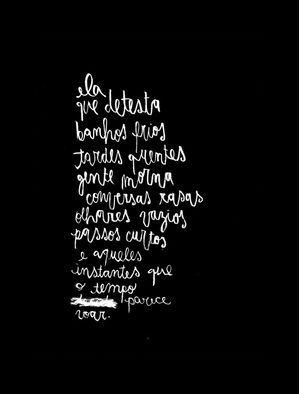 ela
que detesta
banhos frios
tardes quentes
gente morna
conversas rasas
olhares vazios
passos curtos
e aqueles
instantes que
o tempo
parece
voar.